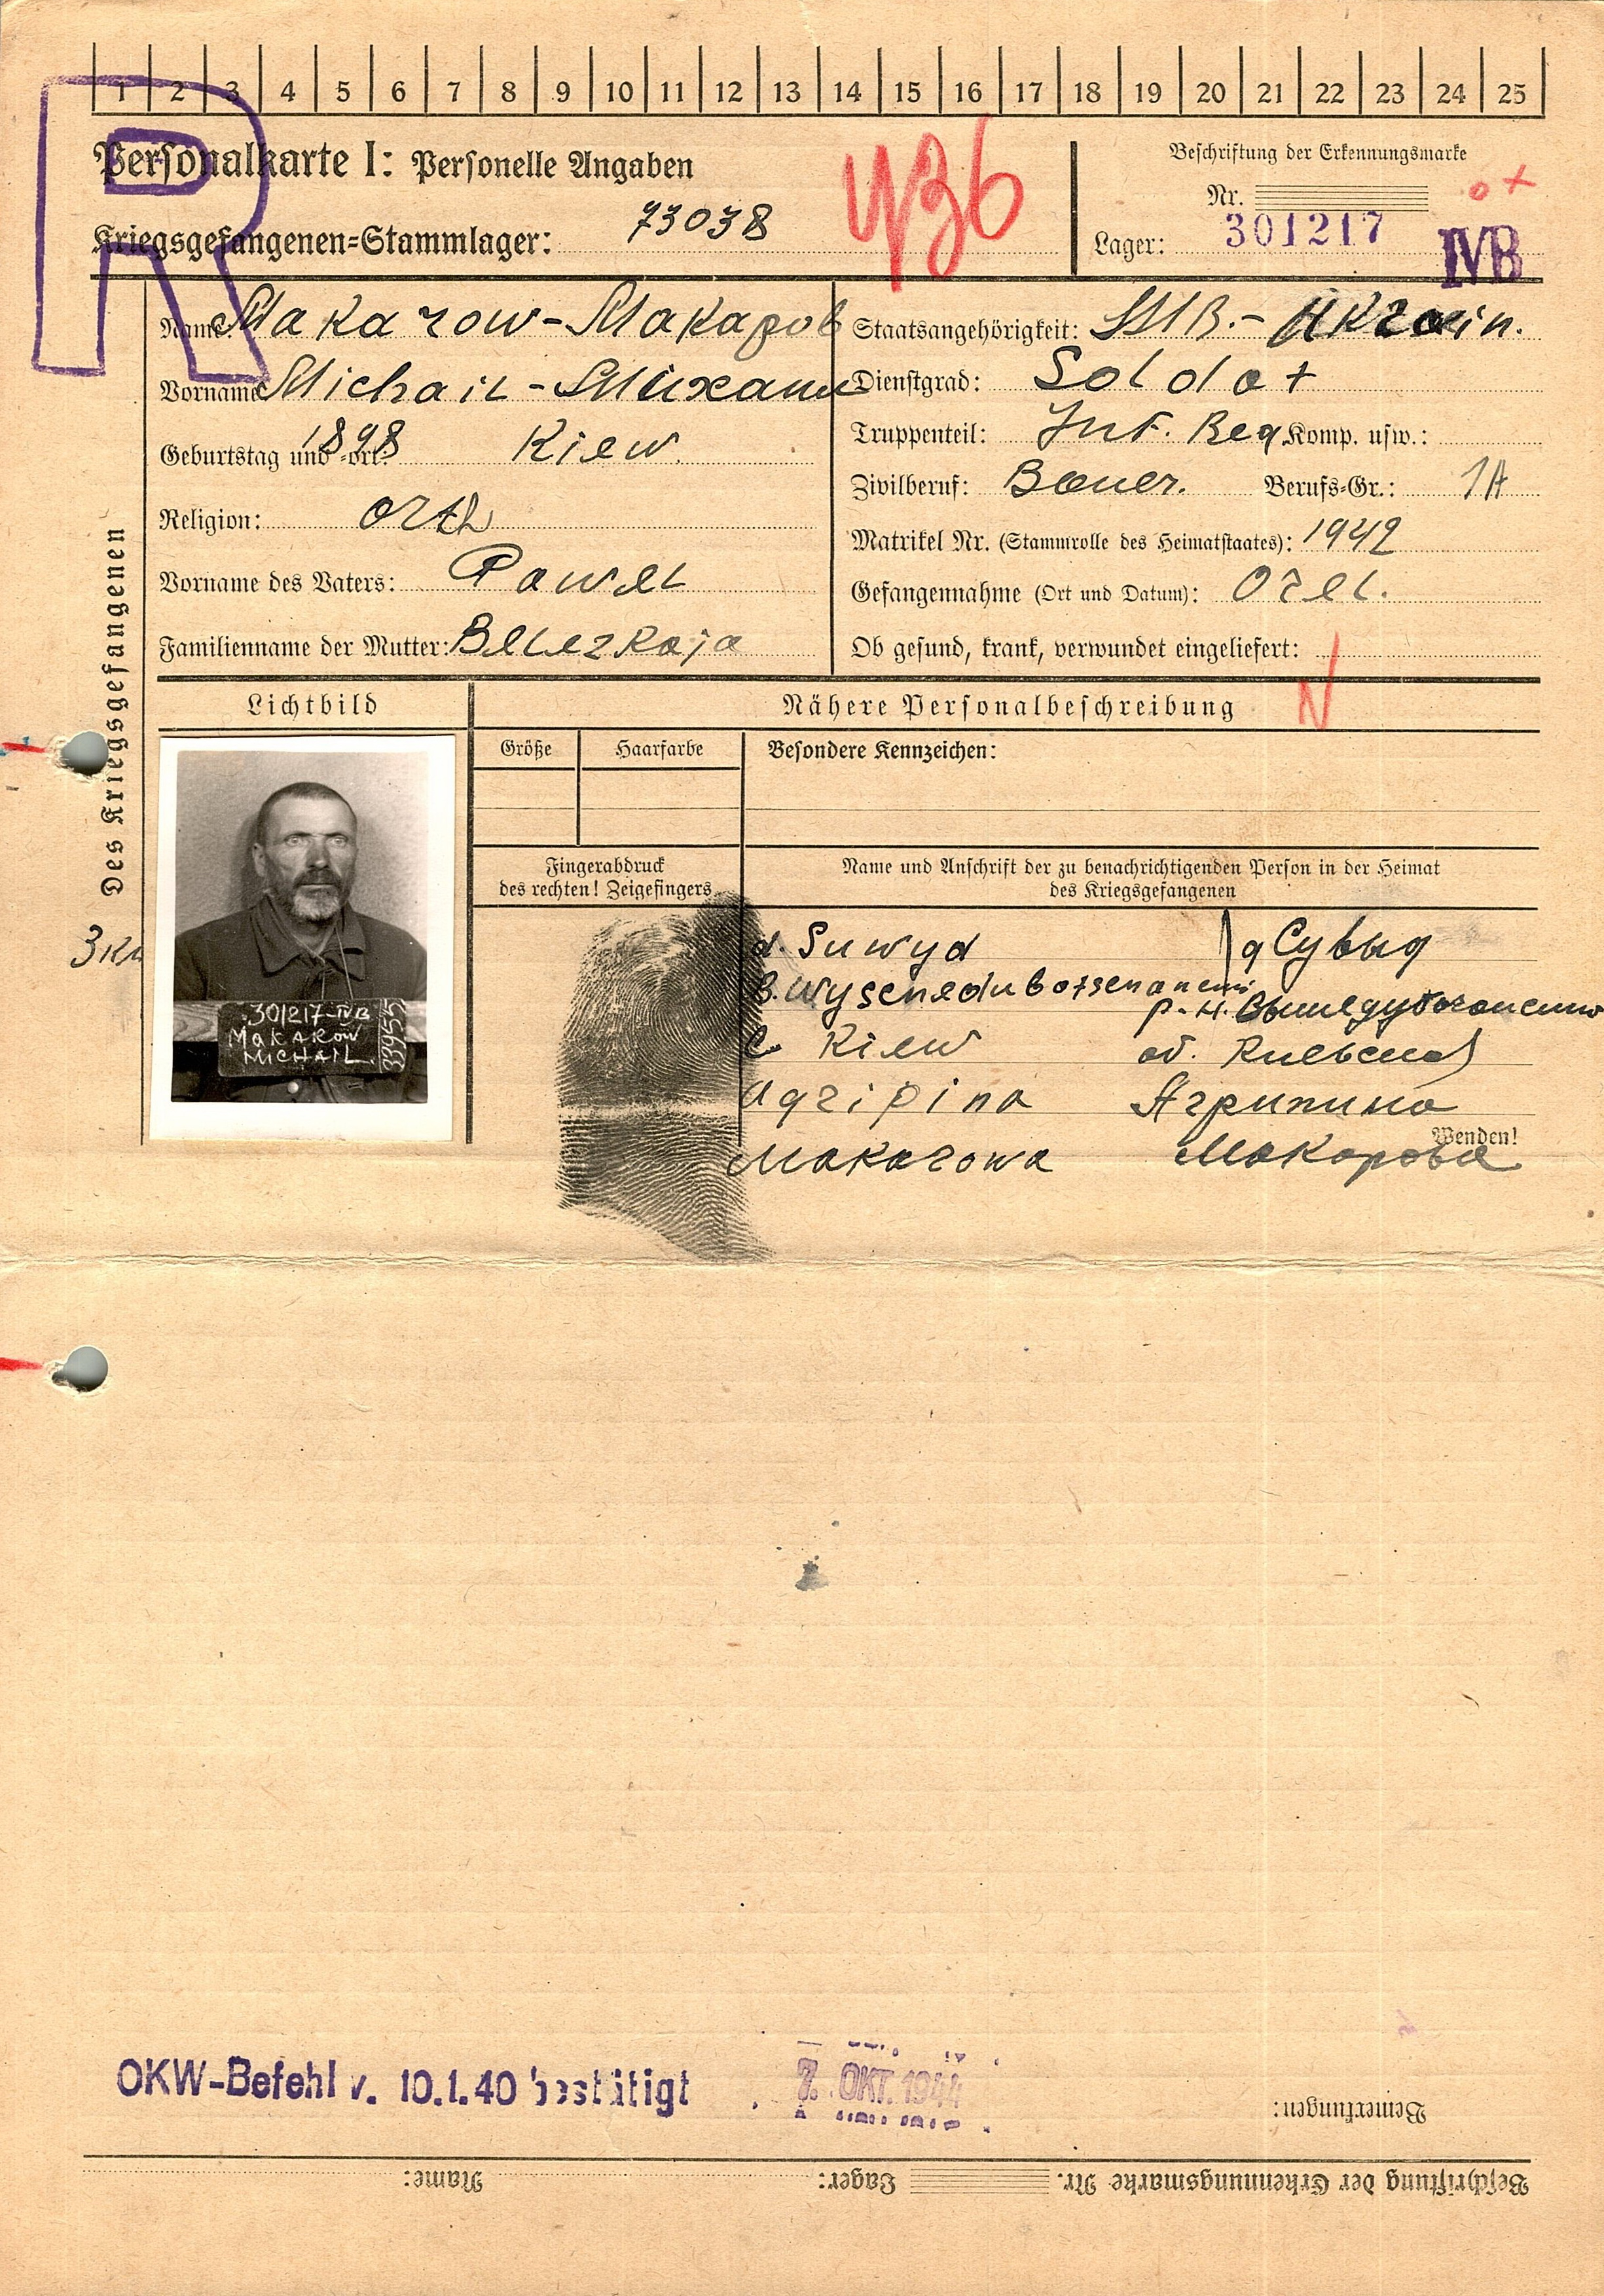 1 2 3 4 5 6 7 8 9 10 11 12 13 14 15 16 17 18 19 20 21 22 23 24 25
Personalkarte I: Personelle Angaben
Kriegsgefangenen-Stammlager: 73038
436
Beschriftung der Erkennungsmarke
Nr.
301217
Lager: IVB
R
Des Kriegsgefangenen
Name: Makarow-Макаров
Vorname: Michail-Михаил
Geburtstag und -ort: 1898 Kiew.
Religion: orth
Vorname des Vaters: Pawel
Familienname der Mutter: Belezkaja
Staatsangehörigkeit: Ukrain.
Dienstgrad: Soldat
Truppenteil: Inf. Reg Komp. usw.:
Zivilberuf: Bauer. Berufs-Gr.: 1A
Matrikel Nr. (Stammrolle des Heimatstaates): 1942
Gefangennahme (Ort und Datum): Orel.
Ob gesund, krank, verwundet eingeliefert:
Lichtbild
Nähere Personalbeschreibung
Größe Haarfarbe Besondere Kennzeichen:
Fingerabdruck
des rechten! Zeigefingers
Name und Anschrift der zu benachrichtigenden Person in der Heimat
des Kriegsgefangenen
301217-IVB
MAKAROW
MICHAIL.
33955
d. Suwyd д Сувыд
Kiew
Agripina Агрипина
Makarowa Макарова
Wenden!
OKW-Befehl v. 10.1.40 bestätigt
7. OKT. 1944
Bemerkungen:
Beschriftung der Erkennungsmarke Nr. Lager: Name: